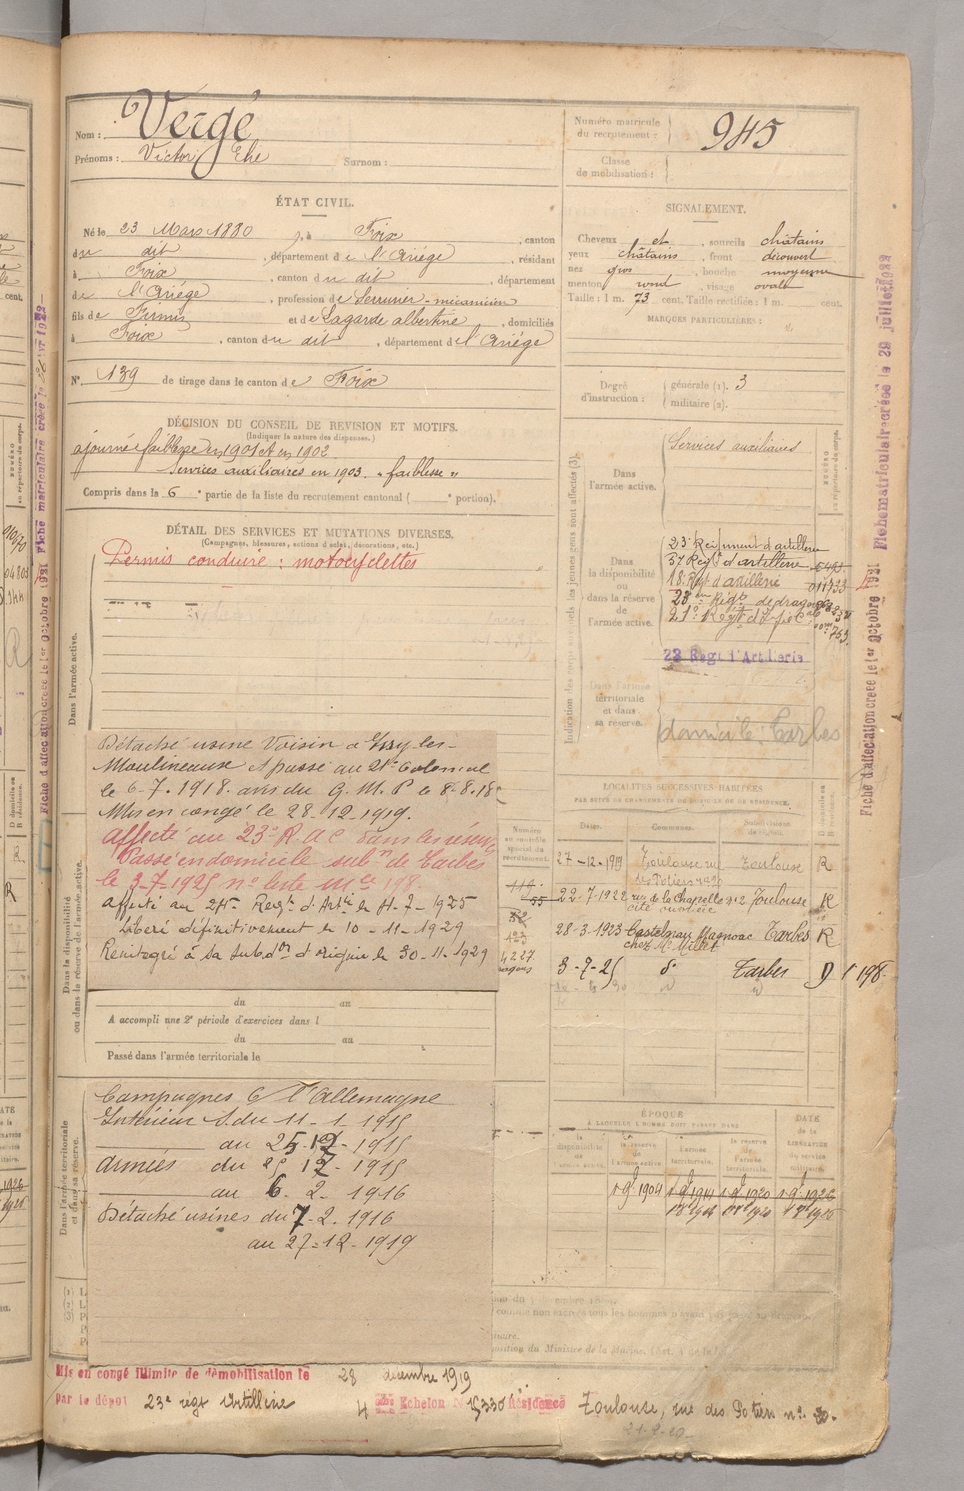 Nom : Vergé
Prénoms : Victor Elie Surnom :
Numéro matricule
du recrutement : 945
Classe
de mobilisation :
ÉTAT CIVIL.
Né le 23 Mars 1880, à Foix, canton
du dit, département de l'Ariège, résidant
à Foix, canton du dit, département
de l'Ariège, profession de Serrurier-mécanicien
fils de Firmin et de Lagarde albertine, domiciliés
à Foix, canton du dit, département de l'Ariège
N° 139 de tirage dans le canton de Foix
SIGNALEMENT.
Cheveux et, sourcils châtains
yeux châtains, front découvert
nez gros, bouche moyenne
menton rond, visage ovale
Taille : 1 m. 73 cent. Taille rectifiée : 1 m. cent.
MARQUES PARTICULIÈRES :
Degré
d'instruction :
générale (1). 3
militaire (2).
DÉCISION DU CONSEIL DE REVISION ET MOTIFS.
(Indiquer la nature des dispenses.)
ajourné faiblesse en 1901 et en 1902
Services auxiliaires en 1903. "faiblesse"
Compris dans la 6e partie de la liste du recrutement cantonal ( e portion).
DÉTAIL DES SERVICES ET MUTATIONS DIVERSES.
(Campagnes, blessures, actions d'éclat, décorations, etc.)
Permis conduire : motocyclettes
Dans l'armée active.
Détaché usine Voisin à Issy-les-
Moulineaux et passé au 21e Colonial
le 6-7.1918. ans du G.M.P le 8-8.18
Mis en congé le 28-12-1919.
affecté au 23e R.A.C dans les réserves
Passé en domicile subon de Tarbes
le 3-7-1925 no liste Mle 198.
affecté au 24e Regt d'Artie le 11-7-1925
Libéré définitivement le 10-11-1929
Réintégré à sa Subdon d'origine le 30-11-1929
Dans la disponibilité
ou dans la réserve de l'armée active.
du au
A accompli une 2e période d'exercices dans l
du au
Passé dans l'armée territoriale le
Dans l'armée territoriale
et dans sa réserve.
Campagnes C l'Allemagne
Intérieur S. du 11-1-1915
au 25-12-1915
Armées du 25 12-1915
au 6-2-1916
Détaché usines du 7-2.1916
au 27-12-1919
Indication des corps auxquels les jeunes gens sont affectés (3).
Dans
l'armée active.
Services auxiliaires
NUMÉRO
au répertoire du corps.
Dans
la disponibilité
ou
dans la réserve
de
l'armée active.
23e Régiment d'artillerie
57 Régt d'artillerie
18e Rgt d'artillerie
28e Régt de dragons
21e Regt d'Infie Cle
23 Régt d'Artillerie
Dans l'armée
territoriale
et dans
sa réserve.
domicile Tarbes
LOCALITÉS SUCCESSIVES HABITÉES
PAR SUITE DE CHANGEMENTS DE DOMICILE OU DE RÉSIDENCE.
Dates. Communes. Subdivisions de région. D domicile ou R résidence.
27-12-1919 Toulouse rue des Potiers no 30 Toulouse R
22-7-1922 rue de la Chapelle no 2 Toulouse R
cité ouvrière
28-3-1923 Castelnau Magnoac Tarbes R
chez Mr Millet
3-7-25 do Tarbes D 198.
ÉPOQUE
À LAQUELLE L'HOMME DOIT PASSER DANS
la disponibilité de l'armée active. la réserve de l'armée active. l'armée territoriale. la réserve de l'armée territoriale.
DATE de la LIBÉRATION du service militaire.
1 9bre 1904 1 9bre 1914 1 9bre 1920 1 9bre 1926
Mis en congé illimité de démobilisation le 28 décembre 1919
par le dépôt 23e régt Artillerie 4 ème Echelon N° 15330 Résidence Toulouse, rue des Potiers no 30.
Fiche d'affectation créée le 1er octobre 1921 Fiche matriculaire créée le 29 juillet 1922